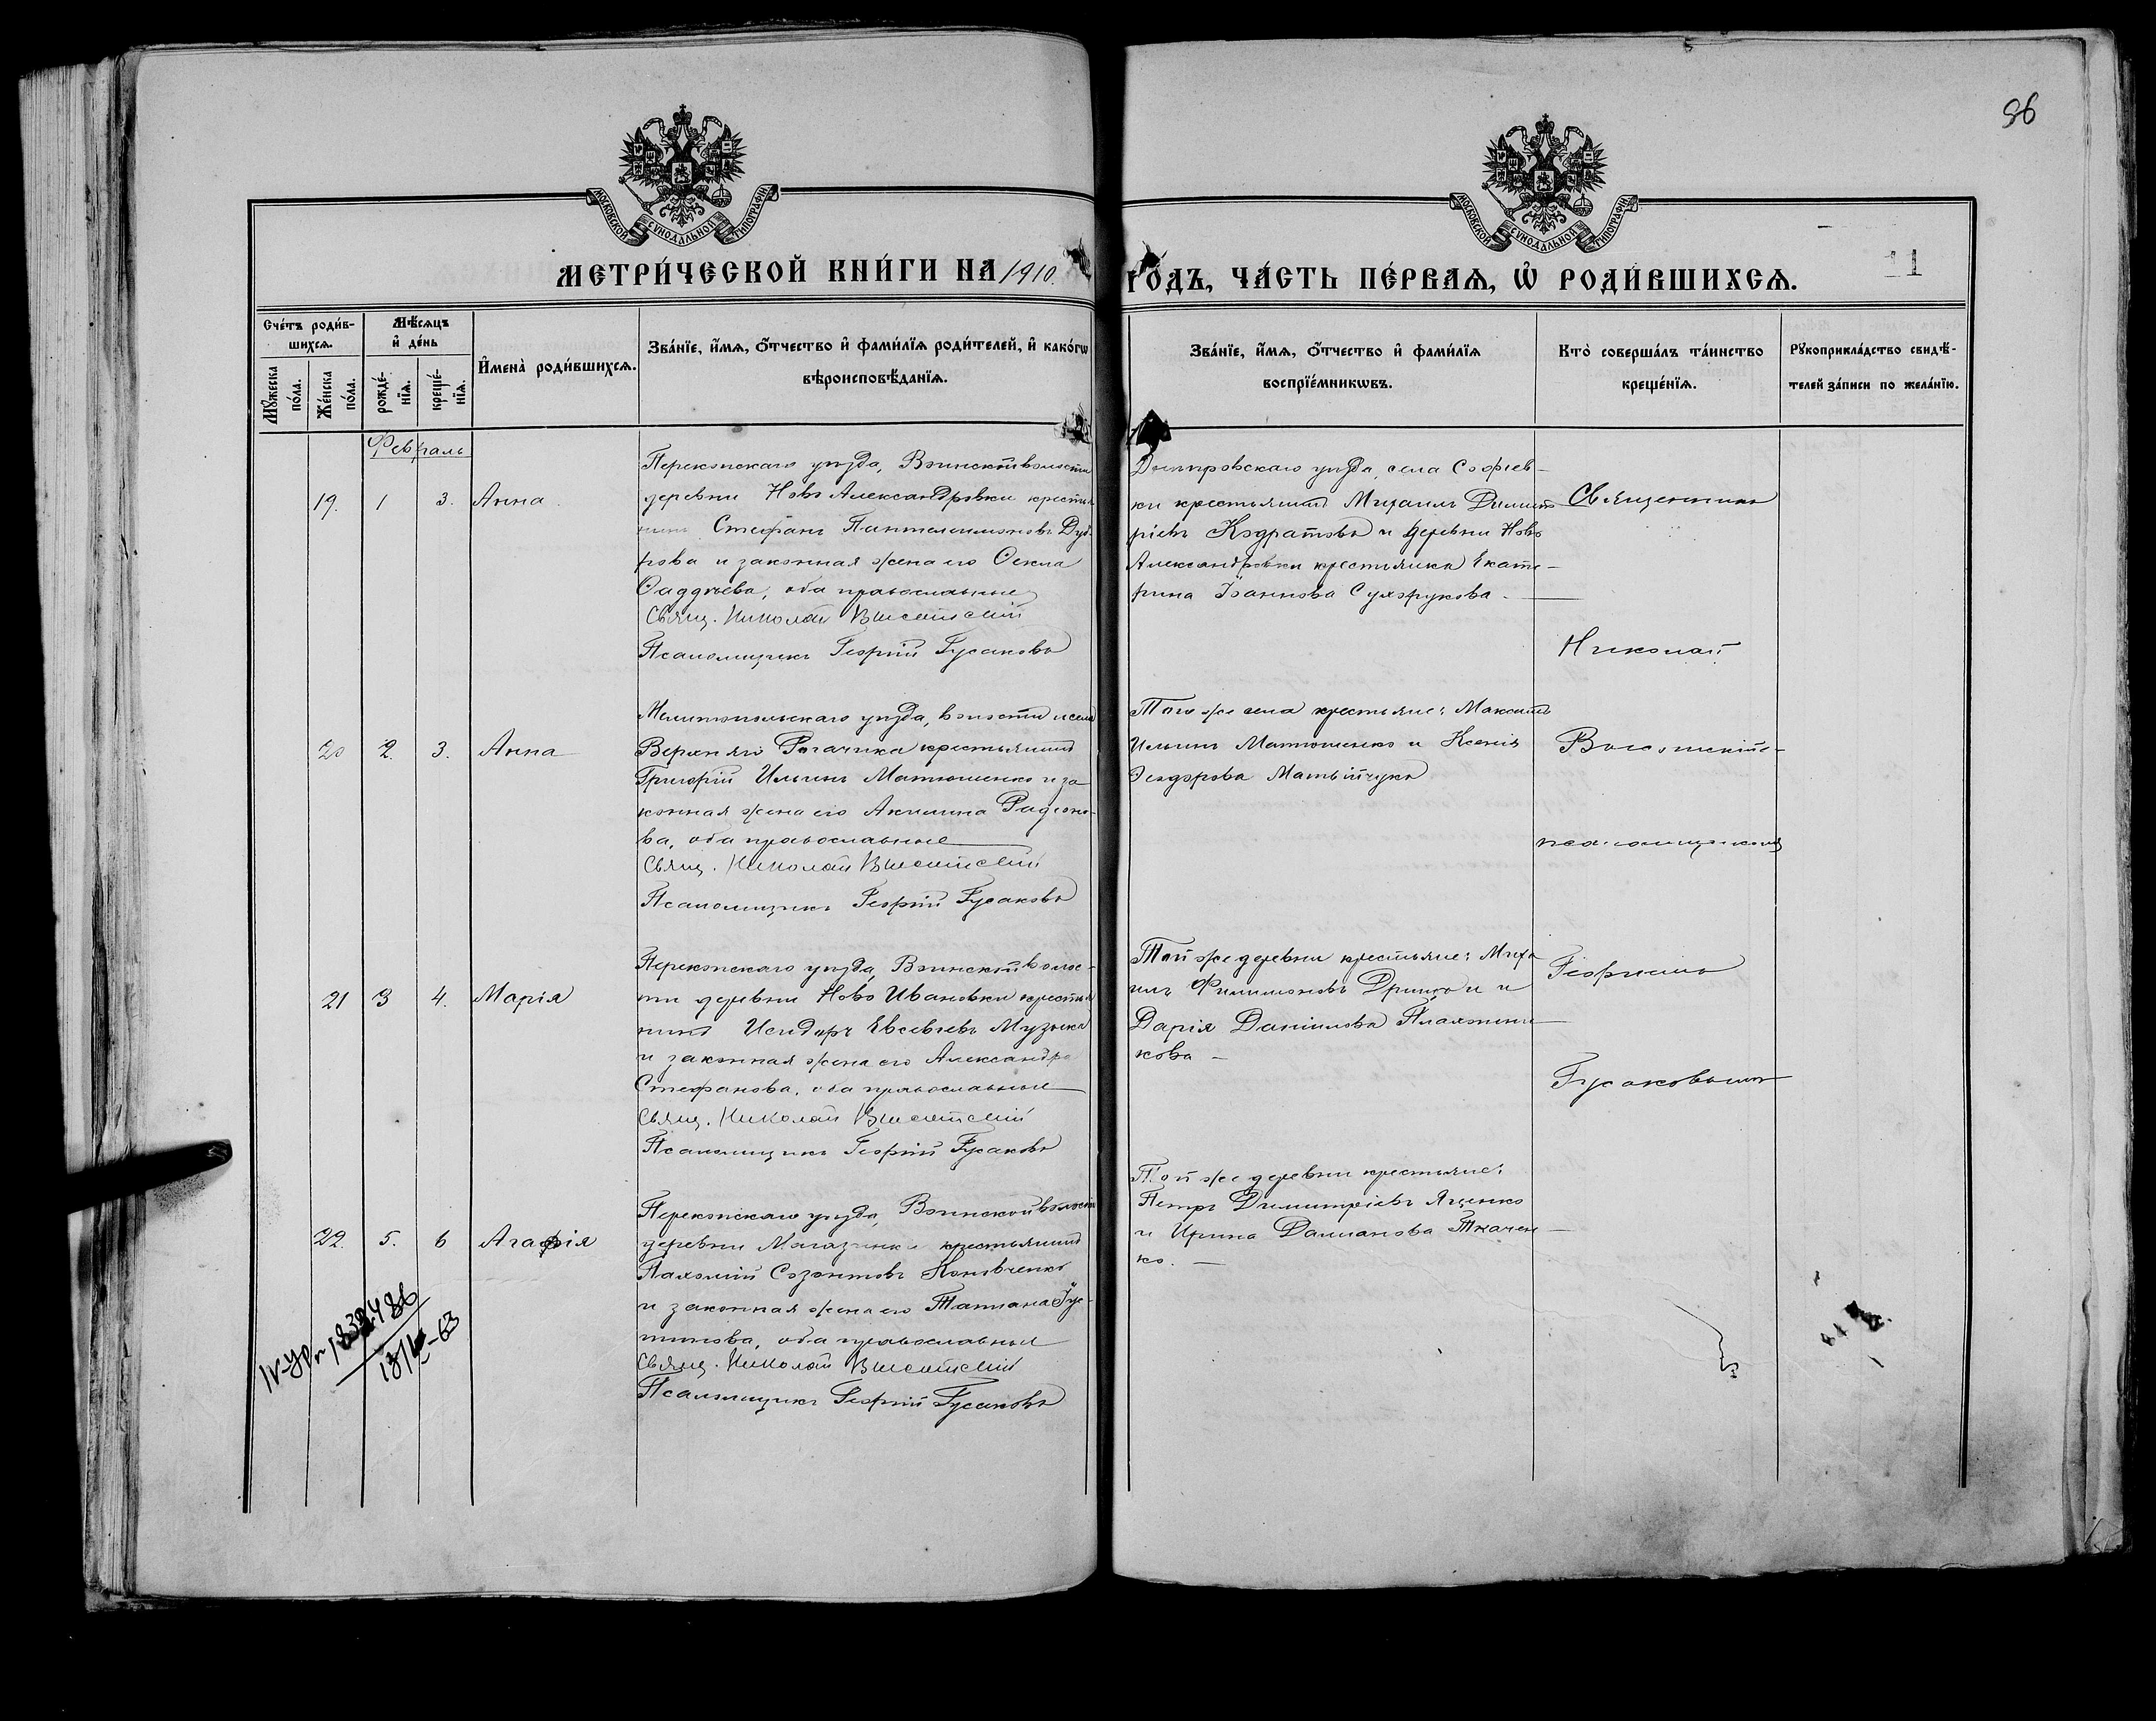 96
МОСКОВСКОЙ СѴНОДАЛЬНОЙ ТИПОГРАФІИ
МОСКОВСКОЙ СѴНОДАЛЬНОЙ ТИПОГРАФІИ
МЕТРИ́ЧЕСКОЙ КНИ́ГИ НА 1910.
ГОДЪ, ЧА́СТЬ ПЕ́РВАѦ, Ѡ҆ РОДИ́ВШИХСѦ.
11
Сче́тъ роди́в-
шихсѧ.
Мꙋ́жеска по́ла.
Же́нска по́ла.
Мѣ́сѧцъ
и҆ де́нь
рожде́-
нїѧ.
креще́-
нїѧ.
И҆мена̀ роди́вшихсѧ.
Зва́нїе, и҆́мѧ, ѻ҆́тчество и҆ фами́лїѧ роди́телей, и҆ како́гѡ
вѣроисповѣ́данїѧ.
Зва́нїе, и҆́мѧ, ѻ҆́тчество и҆ фами́лїѧ
воспрїе́мникѡвъ.
Кто̀ соверша́лъ та́инство
креще́нїѧ.
Рꙋкоприкла́дство свидѣ́-
телей за́писи по жела́нїю.
Февраль
19. 1 3. Анна
Перекопскаго уѣзда, Воинской волости
деревни Ново Александровки крестья
нинъ Стефанъ Пантелеимоновъ
и законная жена его Ѳекла
Ѳаддѣева, оба православные
Свящ. Николай Высотскій
Псаломщикъ Георгій Гусаковъ
Днѣпровскаго уѣзда, села Софіев-
ки крестьянинъ Михаилъ Димит
ріевъ Кодратовъ и деревни Ново
Александровки крестьянка Екате-
рина Іоаннова Сухорукова.
20 2. 3. Анна
Мелитопольскаго уѣзда, волости и села
Верхняго Рогачика крестьянинъ
Григорій Ильинъ Матюшенко и за
конная жена его Акилина Радионо-
ва, оба православные
Свящ. Николай Высотскій
Псаломщикъ Георгій Гусаковъ
Того же села крестьяне: Максимъ
Ильинъ Матюшенко и Ксенія
Ѳеодорова Матвійчукъ
21 3 4. Марія
Перекопскаго уѣзда, Воинской волос-
ти деревни Ново Ивановки крестья
нинъ Исидоръ Евсевіевъ Музыка
и законная жена его Александра
Стефанова, оба православные
Свящ. Николай Высотскій
Псаломщикъ Георгій Гусаковъ
Той же деревни крестьяне: Миха
илъ Филимоновъ и
Дарія Даніилова
кова
22. 5. 6 Агафія
Перекопскаго уѣзда, Воинской волости
деревни Магазинки крестьянинъ
Пахомій Созонтовъ
и законная жена его Татіана Іус-
тинова, оба православные
Свящ. Николай Высотскій
Псаломщикъ Георгій Гусаковъ
Той же деревни крестьяне:
Петръ Димитріевъ Яценко
и Ирина Даміанова Ткачен-
ко.
Священникъ
Николай
Высотскій
псаломщикомъ
Георгіемъ
Гусаковымъ